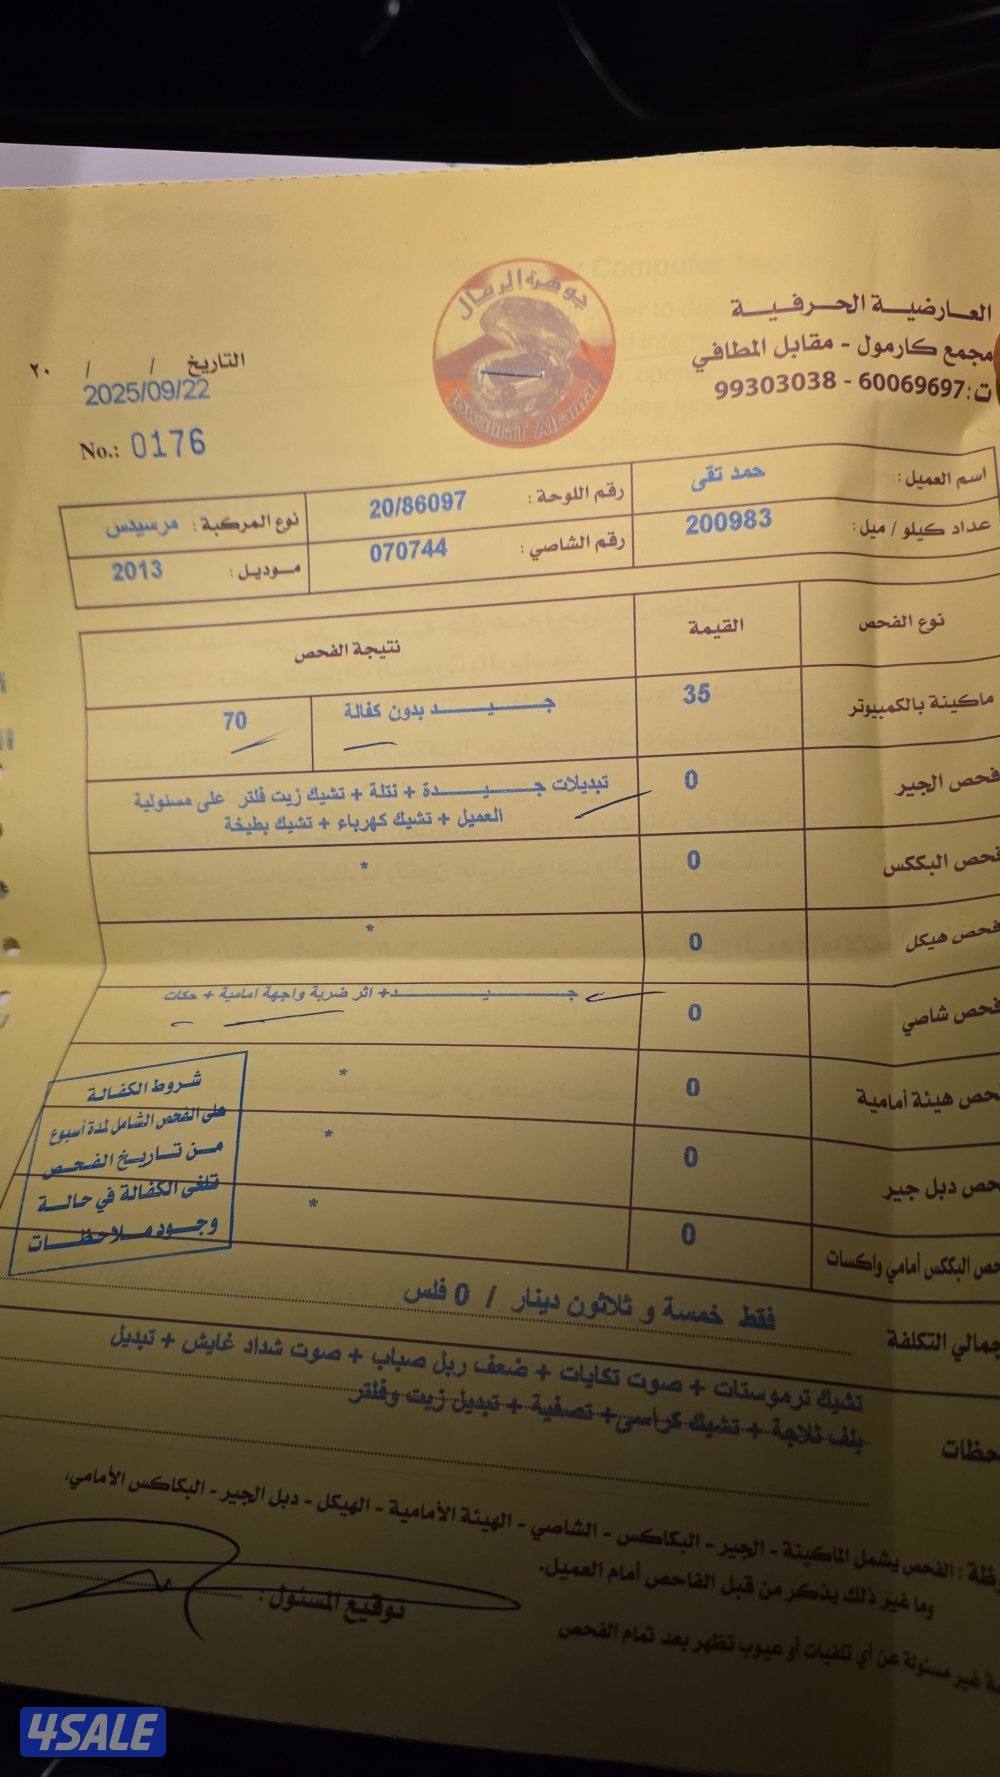 العارضية الحرفية
مجمع كارمول - مقابل المطافي
ت: 60069697 - 99303038
جوهرة الرمال
Jowahrat Alramal
التاريخ / / ٢٠
2025/09/22
No.: 0176
اسم العميل: حمد تقى
رقم اللوحة: 20/86097
نوع المركبة: مرسيدس
عداد كيلو / ميل: 200983
رقم الشاصي: 070744
موديل: 2013
نوع الفحص القيمة نتيجة الفحص
ماكينة بالكمبيوتر 35 جيد بدون كفالة 70
فحص الجير 0 تبديلات جيدة + نتلة + تشيك زيت فلتر على مسئولية
العميل + تشيك كهرباء + تشيك بطيخة
فحص البككس 0 *
فحص هيكل 0 *
فحص شاصي 0 جيد + اثر ضربة واجهة امامية + حكات
حص هيئة أمامية 0 *
حص دبل جير 0 *
حص البككس أمامي واكسات 0 *
شروط الكفالة
على الفحص الشامل لمدة أسبوع
من تاريخ الفحص
تلغى الكفالة في حالة
وجود ملاحظات
جمالي التكلفة فقط خمسة و ثلاثون دينار / 0 فلس
حظات تشيك ترموستات + صوت تكايات + ضعف ربل صباب + صوت شداد غايش + تبديل
بلف ثلاجة + تشيك كراسى + تصفية + تبديل زيت وفلتر
وظة : الفحص يشمل الماكينة - الجير - البكاكس - الشاصي - الهيئة الأمامية - الهيكل - دبل الجير - البكاكس الأمامي،
وما غير ذلك يذكر من قبل الفاحص أمام العميل.
توقيع المسئول :
غير مسئولة عن أي تلفيات أو عيوب تظهر بعد تمام الفحص
4SALE